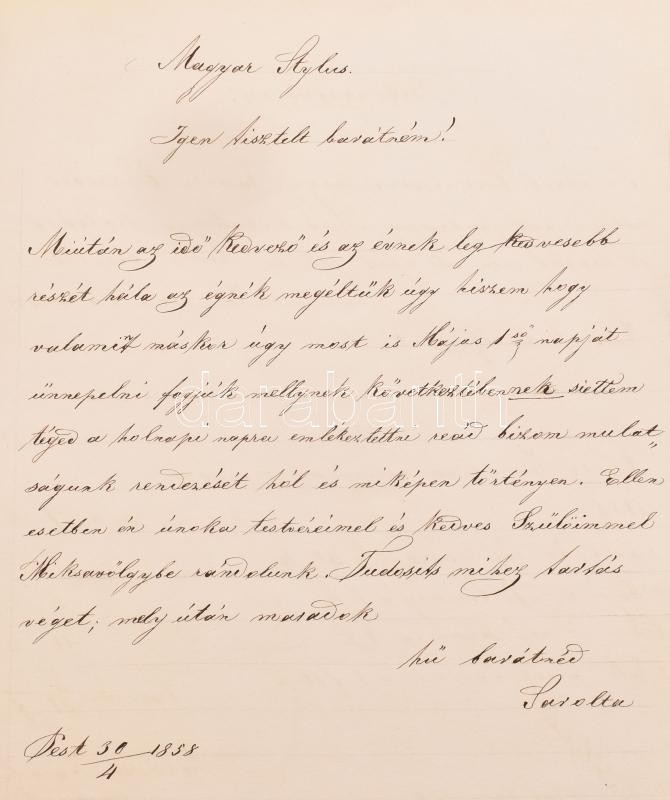 Magyar Stylus.
Igen tisztelt barátném!
Miútán az idő kedvező és az évnek leg kedvesebb
részét hála az égnék megéltük úgy hiszem hogy
valamint máskor úgy most is Május 1ső napját
ünnepelni fogjuk mellynek következtében siettem
téged a holnapi napra emlékeztetni reád bizom mulat„
ságunk rendezését hól és miképen történyen. Ellen
esetben én únoka testvéreimel és kedves Szülöimmel
Miksavölgybe rándolunk. Tudosits mihez tartás
véget; mely után maradok
hü barátnéd
Sarolta
Pest 30/4 1858
darabanth